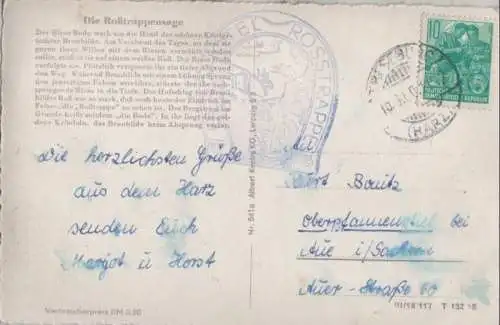 Die Roßtrappensage
Der Riese Bodo warb um die Hand der schönen Königs-
tochter Brunhilde. Am Vorabend des Tages, an dem sie
gegen ihren Willen mit dem Riesen vermählt werden
sollte, entfloh sie auf einem weißen Roß. Der Riese Bodo
verfolgte sie. Plötzlich versperrte ihr ein tiefer Abgrund
den Weg. Während Brunhilde mit einem kühnen Sprung
den jenseitigen Felsen erreichte, stürzte der
Riese in die Tiefe. Der Hufschlag von Brunhil-
des Roß war so stark, daß noch heute der Eindruck im
Felsen „die Roßtrappe" zu sehen ist. Der Bergstrom im
Grunde heißt seitdem „die Bode". In ihr liegt das gol-
dene Krönlein, das Brunhilde beim Absprung verlor.
HOTEL ROSSTRAPPE
10
DEUTSCHE DEMOKRATISCHE REPUBLIK
(HARZ)
Die herzlichsten Grüße
aus dem Harz
senden Euch
Margot u Horst
An
Kurt Bonitz
Oberpfannenstiel bei
Aue i/Sachsen
Auer-Straße 60
Nr. 541a Albert Kreutz KG., Leipzig S 3
Verbraucherpreis DM 0.20
III/18/117 T 132 55